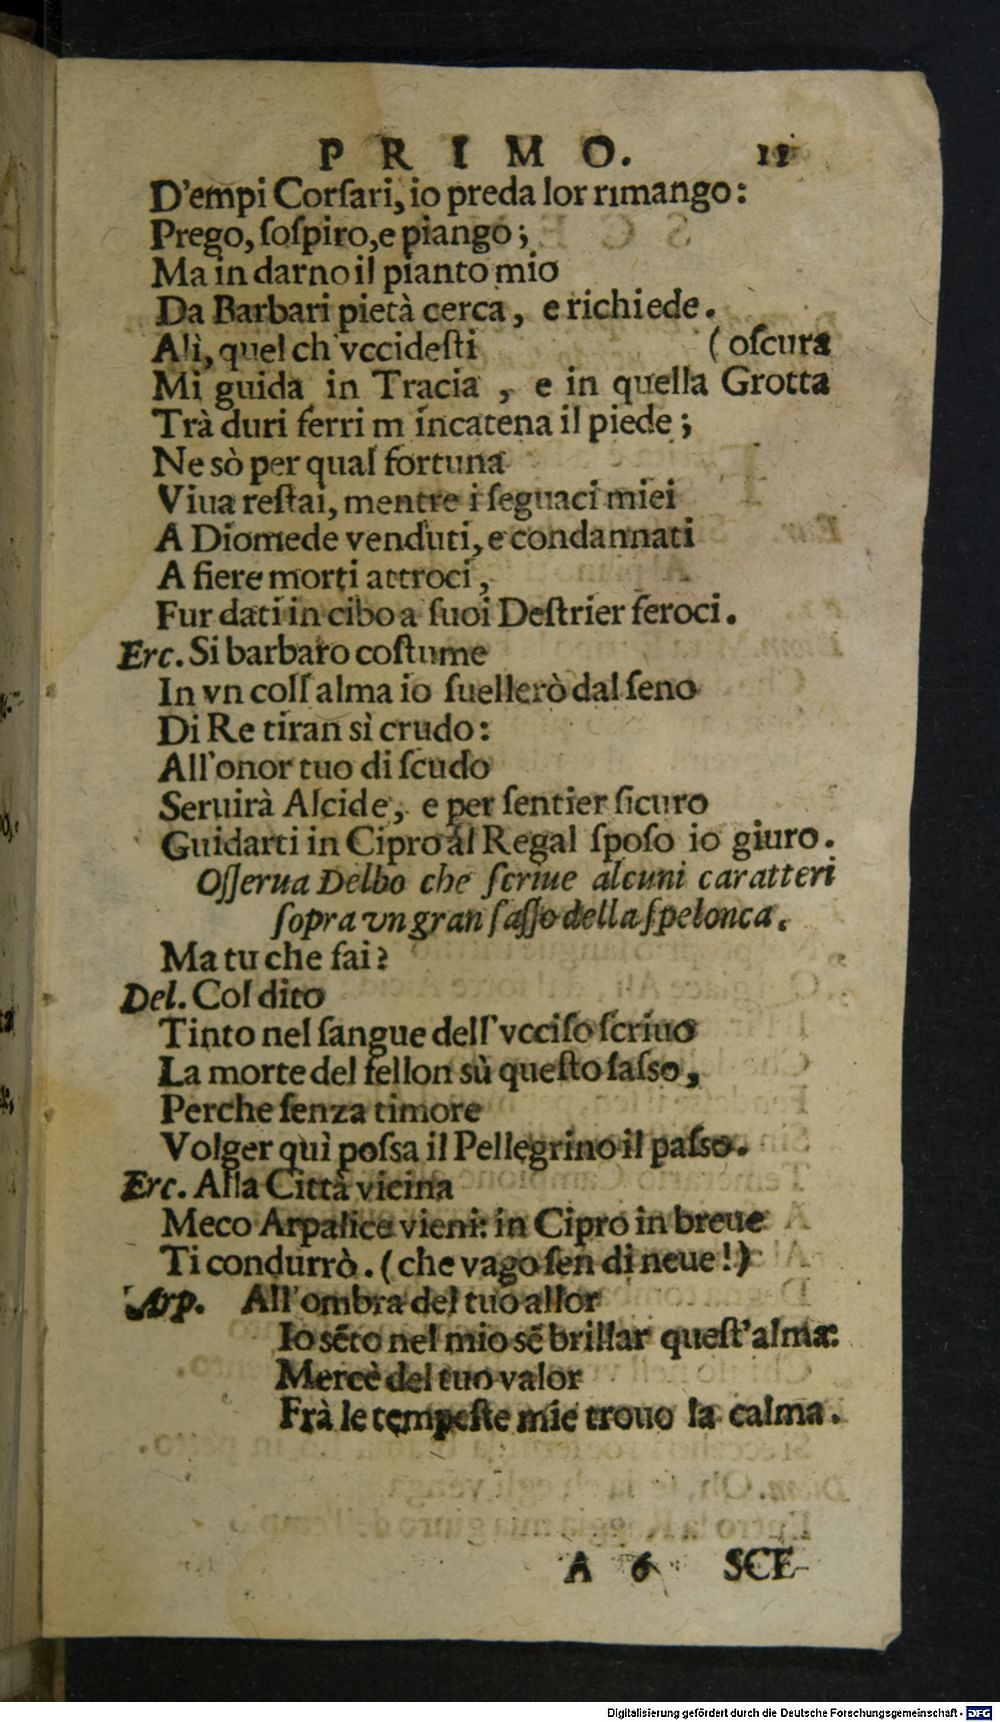 PRIMO. 11
D'empi Corſari, io preda lor rimango:
Prego, ſoſpiro, e piango;
Ma in darno il pianto mio
Da Barbari pietà cerca, e richiede.
Alì, quel ch'vccideſti (oſcura
Mi guida in Tracia, e in quella Grotta
Trà duri ferri m'incatena il piede;
Ne sò per qual fortuna
Viua reſtai, mentre i ſeguaci miei
A Diomede venduti, e condannati
A fiere morti attroci,
Fur dati in cibo a ſuoi Deſtrier feroci.
Erc. Si barbaro coſtume
In vn coll'alma io ſuellerò dal ſeno
Di Re tiran sì crudo:
All'onor tuo di ſcudo
Seruirà Alcide, e per ſentier ſicuro
Guidarti in Cipro al Regal ſpoſo io giuro.
Oſſerua Delbo che ſcriue alcuni caratteri
ſopra vn gran ſaſſo della ſpelonca.
Ma tu che fai?
Del. Col dito
Tinto nel ſangue dell'vcciſo ſcriuo
La morte del fellon sù queſto ſaſso,
Perche ſenza timore
Volger quì poſsa il Pellegrino il paſso.
Erc. Alla Città vicina
Meco Arpalice vieni: in Cipro in breue
Ti condurrò. (che vago ſen di neue!)
Arp. All'ombra del tuo allor
Io sẽto nel mio sẽ brillar queſt'alma:
Mercè del tuo valor
Frà le tempeſte mie trouo la calma.
A 6 SCE-
Digitalisierung gefördert durch die Deutsche Forschungsgemeinschaft - DFG